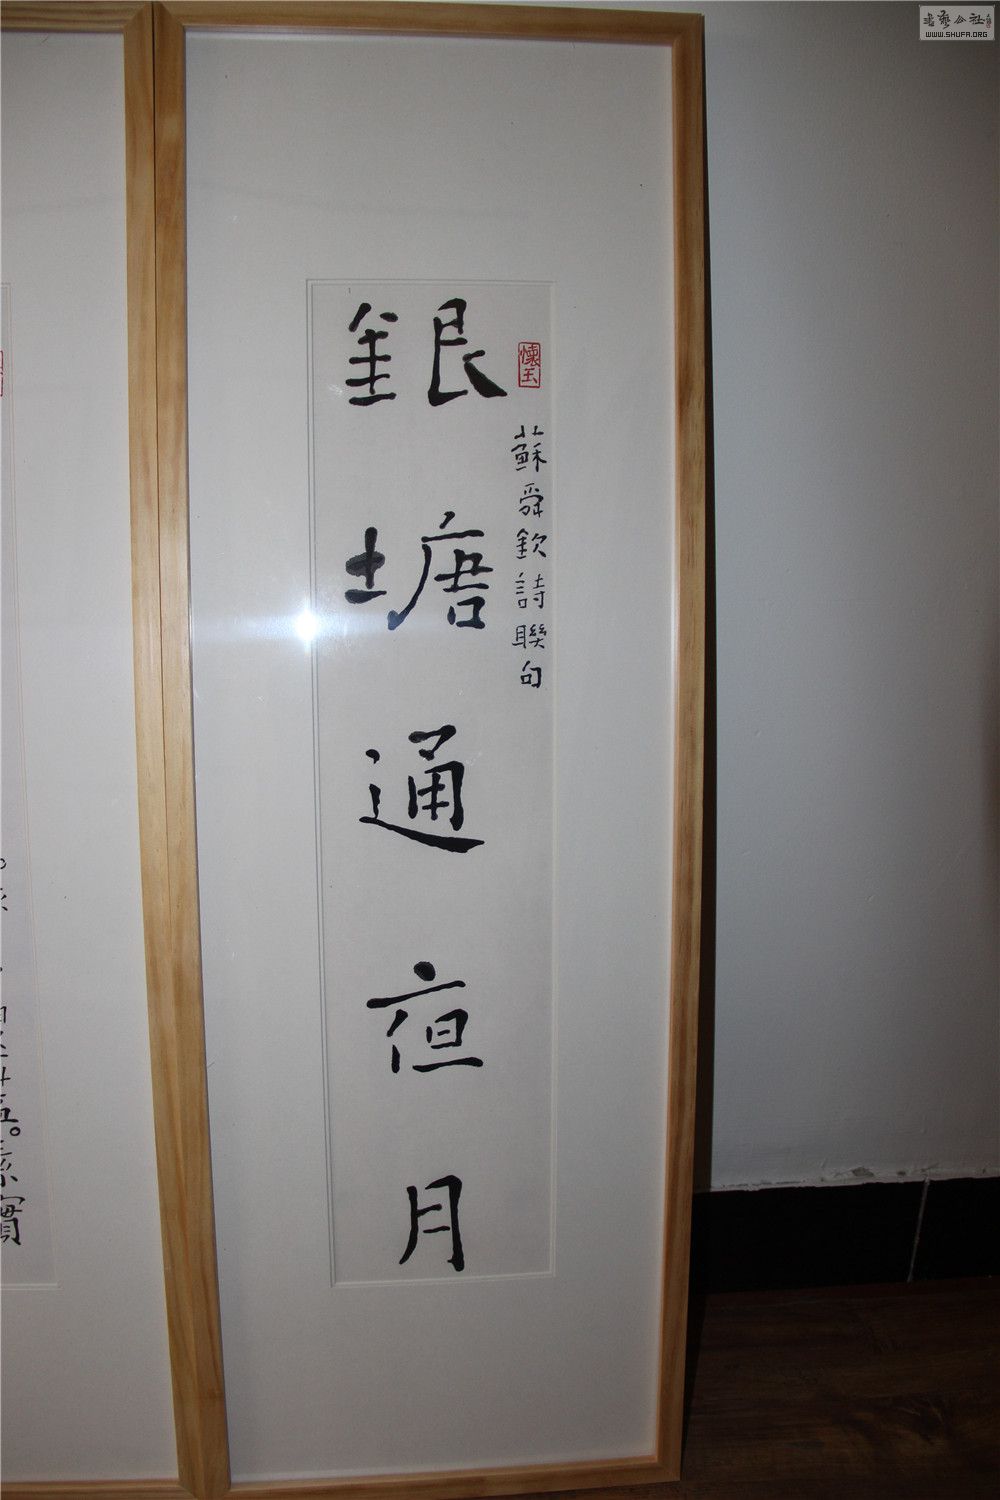 銀塘通夜月
懷玉
蘇舜欽詩聯句
書藝公社
WWW.SHUFA.ORG